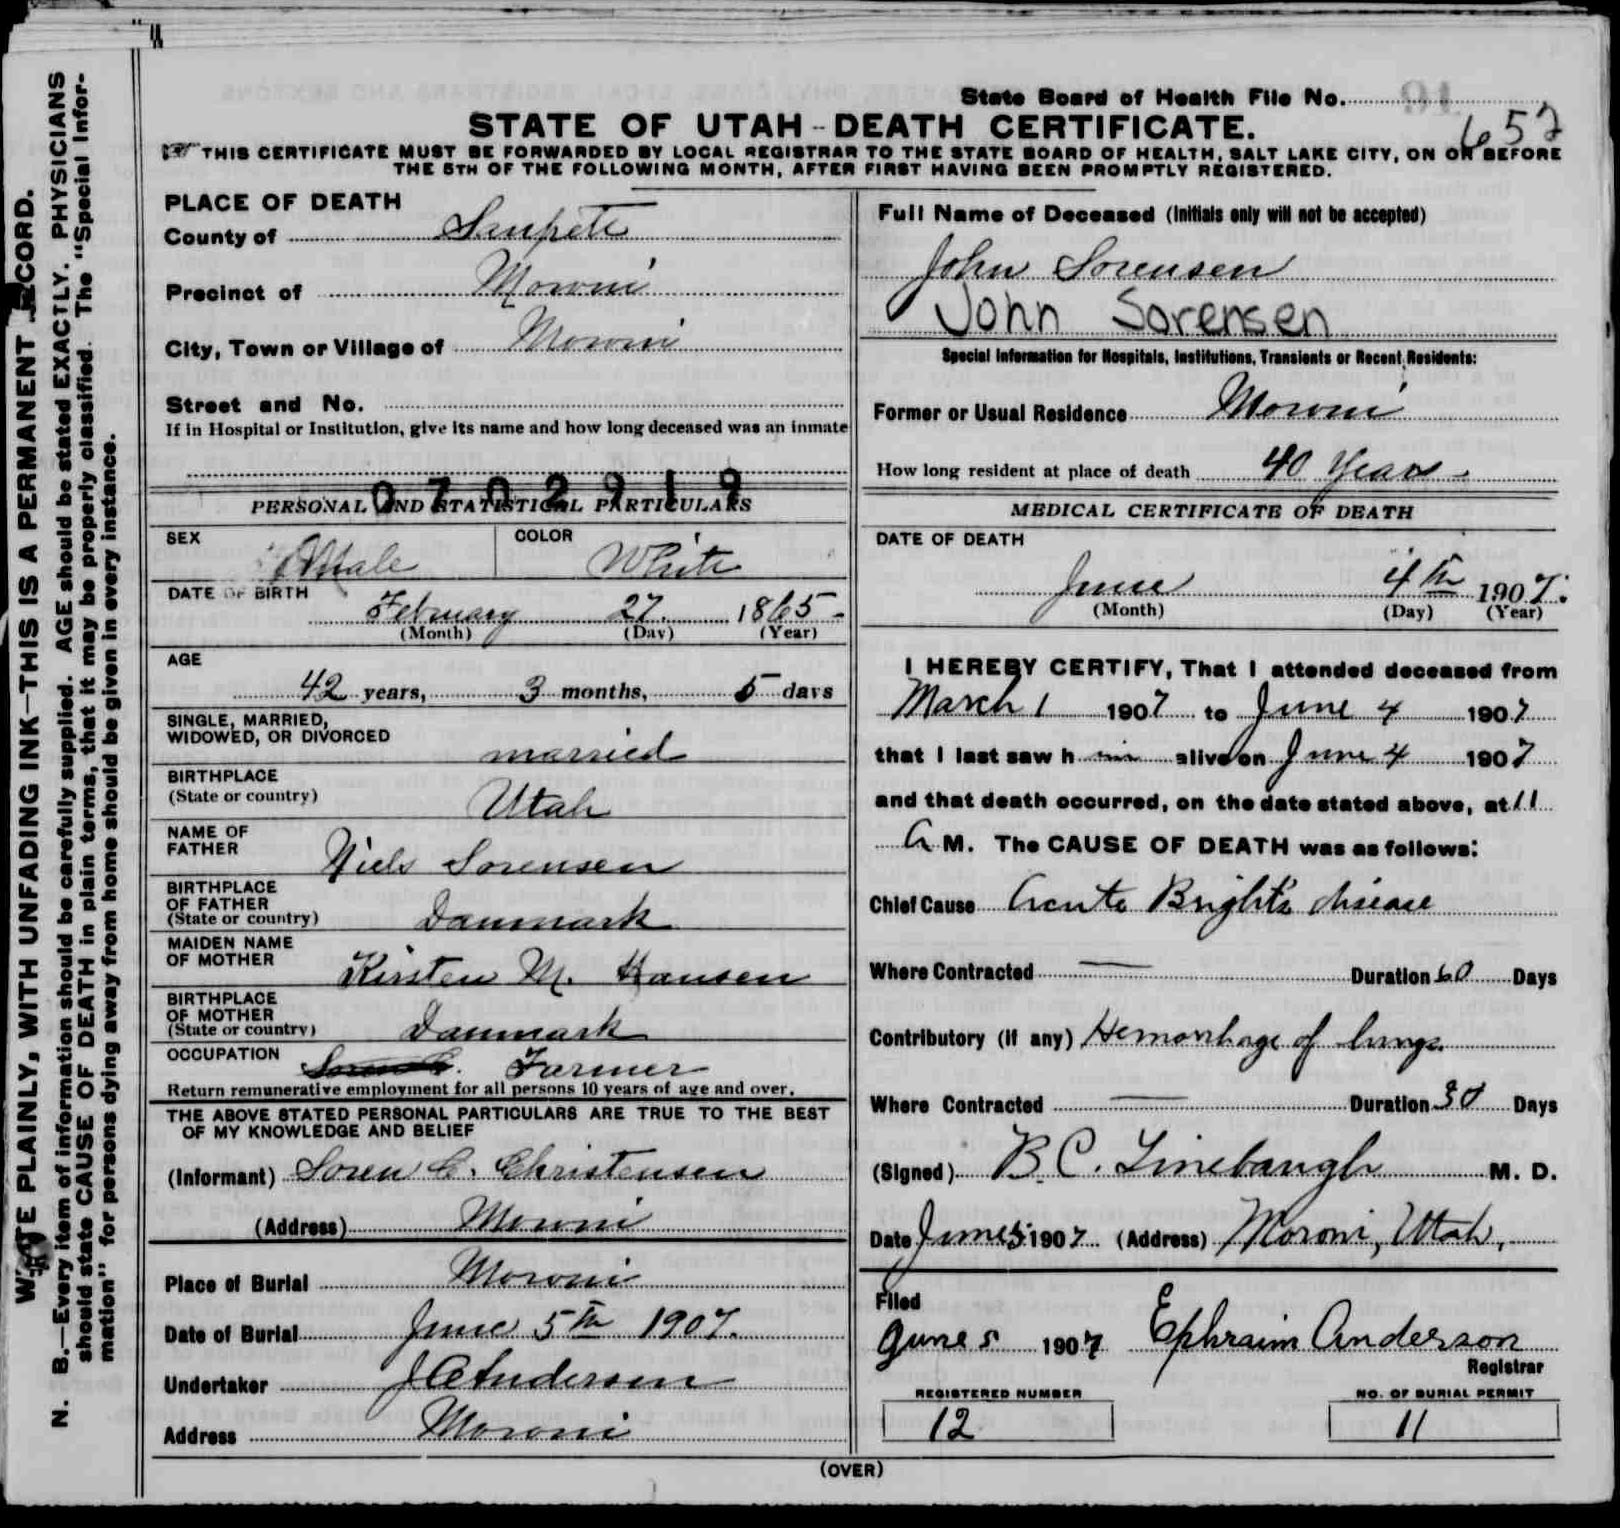 WRITE PLAINLY, WITH UNFADING INK—THIS IS A PERMANENT RECORD.
N. B.—Every item of information should be carefully supplied. AGE should be stated EXACTLY. PHYSICIANS
should state CAUSE OF DEATH in plain terms, that it may be properly classified. The "Special Infor-
mation" for persons dying away from home should be given in every instance.
State Board of Health File No.
652
STATE OF UTAH--DEATH CERTIFICATE.
THIS CERTIFICATE MUST BE FORWARDED BY LOCAL REGISTRAR TO THE STATE BOARD OF HEALTH, SALT LAKE CITY, ON OR BEFORE
THE 5TH OF THE FOLLOWING MONTH, AFTER FIRST HAVING BEEN PROMPTLY REGISTERED.
PLACE OF DEATH
County of Sanpete
Precinct of Moroni
City, Town or Village of Moroni
Street and No.
If in Hospital or Institution, give its name and how long deceased was an inmate
0702919
PERSONAL AND STATISTICAL PARTICULARS
SEX Male COLOR White
DATE OF BIRTH
February 27. 1865
(Month) (Day) (Year)
AGE
42 years, 3 months, 5 days
SINGLE, MARRIED,
WIDOWED, OR DIVORCED
married
BIRTHPLACE
(State or country)
Utah
NAME OF
FATHER
Niels Sorensen
BIRTHPLACE
OF FATHER
(State or country)
Danmark
MAIDEN NAME
OF MOTHER
Kirsten M. Hansen
BIRTHPLACE
OF MOTHER
(State or country)
Danmark
OCCUPATION
Farmer
Return remunerative employment for all persons 10 years of age and over.
THE ABOVE STATED PERSONAL PARTICULARS ARE TRUE TO THE BEST
OF MY KNOWLEDGE AND BELIEF
(Informant) Soren C. Christensen
(Address) Moroni
Place of Burial Moroni
Date of Burial June 5th 1907.
Undertaker J C Andersen
Address Moroni
Full Name of Deceased (Initials only will not be accepted)
John Sorensen
John Sorensen
Special Information for Hospitals, Institutions, Transients or Recent Residents:
Former or Usual Residence Moroni
How long resident at place of death 40 years
MEDICAL CERTIFICATE OF DEATH
DATE OF DEATH
June 4th 1907.
(Month) (Day) (Year)
I HEREBY CERTIFY, That I attended deceased from
March 1 1907 to June 4 1907
that I last saw h im alive on June 4 1907
and that death occurred, on the date stated above, at 11
A M. The CAUSE OF DEATH was as follows:
Chief Cause Acute Bright's disease
Where Contracted — Duration 60 Days
Contributory (if any) Hemorrhage of lungs.
Where Contracted — Duration 30 Days
(Signed) B. C. Linebaugh M. D.
Date June 5 1907 (Address) Moroni, Utah,
Filed
June 5 1907 Ephraim Anderson
Registrar
REGISTERED NUMBER
12
NO. OF BURIAL PERMIT
11
(OVER)